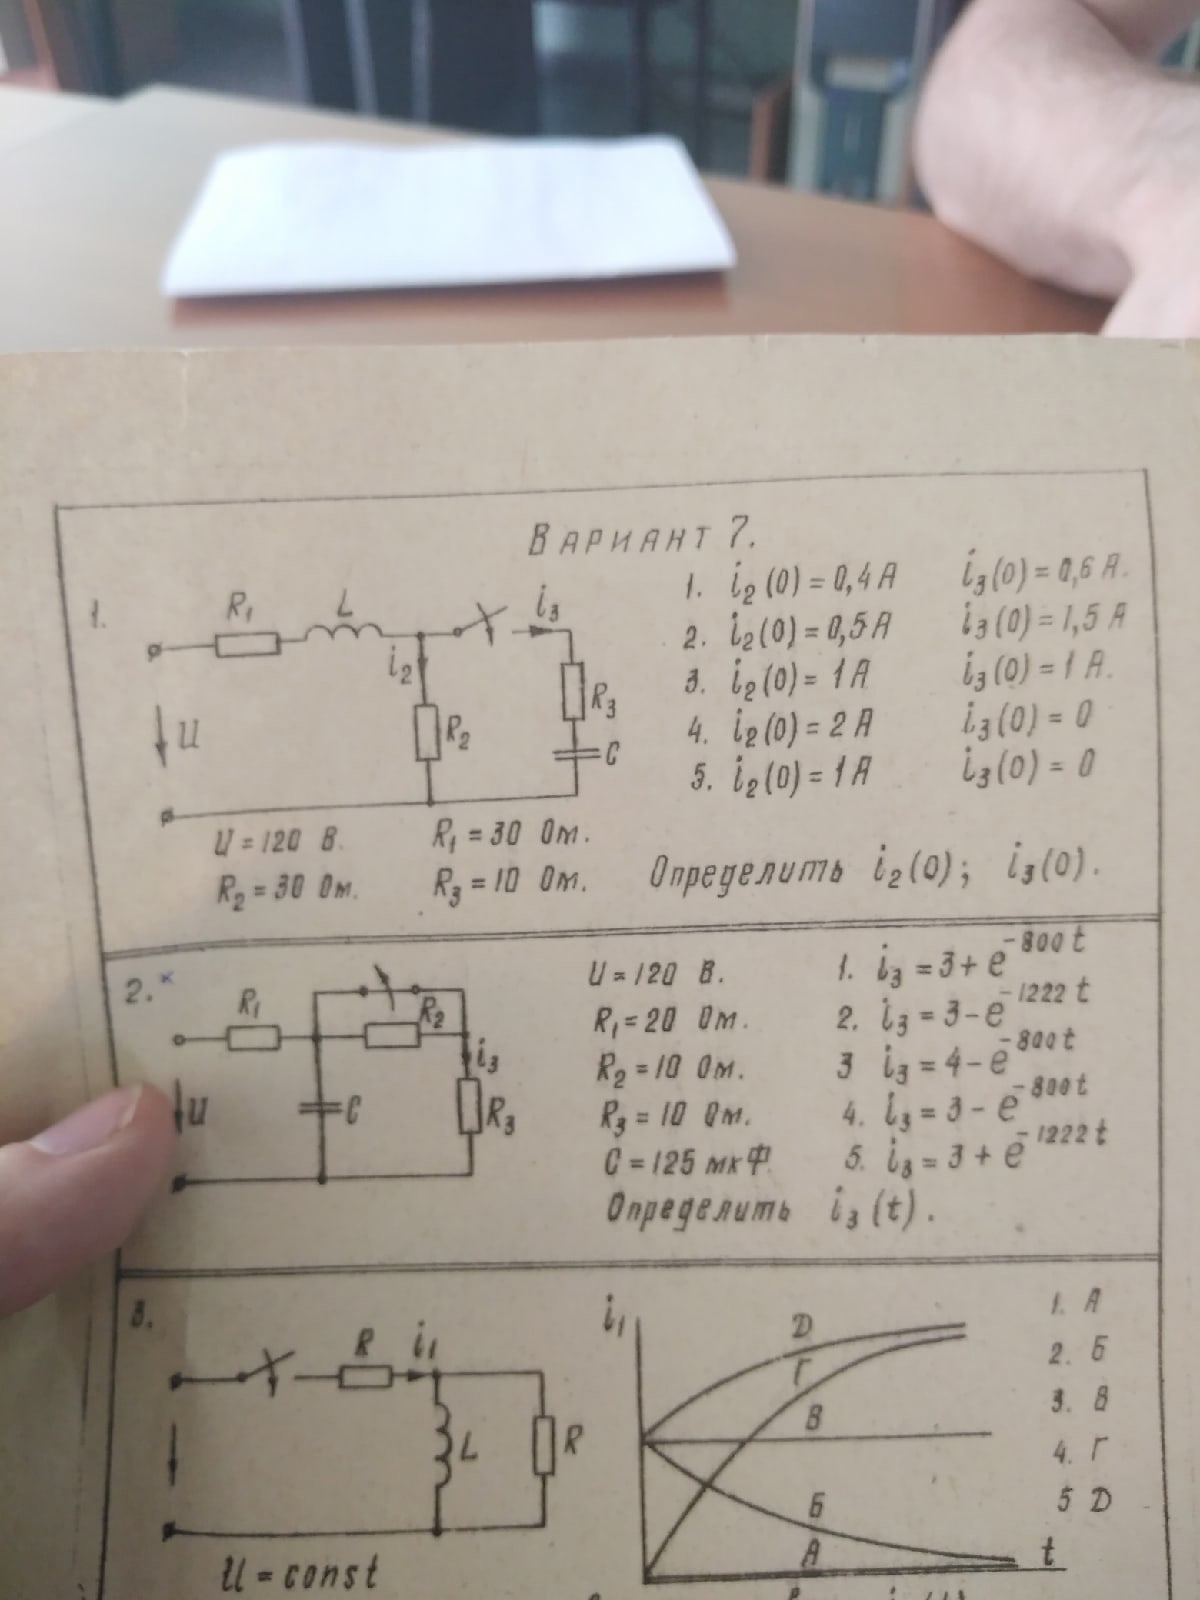 Вариант 7.
1.
R₁ L i₃
i₂
R₂ R₃
U C
1. i₂(0) = 0,4 А i₃(0) = 0,6 А.
2. i₂(0) = 0,5 А i₃(0) = 1,5 А
3. i₂(0) = 1 А i₃(0) = 1 А.
4. i₂(0) = 2 А i₃(0) = 0
5. i₂(0) = 1 А i₃(0) = 0
U = 120 В. R₁ = 30 Ом.
R₂ = 30 Ом. R₃ = 10 Ом.
Определить i₂(0); i₃(0).
2. ×
R₁ R₂
i₃
U C R₃
U = 120 В.
R₁ = 20 Ом.
R₂ = 10 Ом.
R₃ = 10 Ом.
C = 125 мкФ
1. i₃ = 3 + e^-800t
2. i₃ = 3 - e^-1222t
3 i₃ = 4 - e^-800t
4. i₃ = 3 - e^-800t
5. i₃ = 3 + e^-1222t
Определить i₃(t).
3.
R i₁
L R
U = const
i₁
Д
Г
В
Б
А
t
1. А
2. Б
3. В
4. Г
5 Д